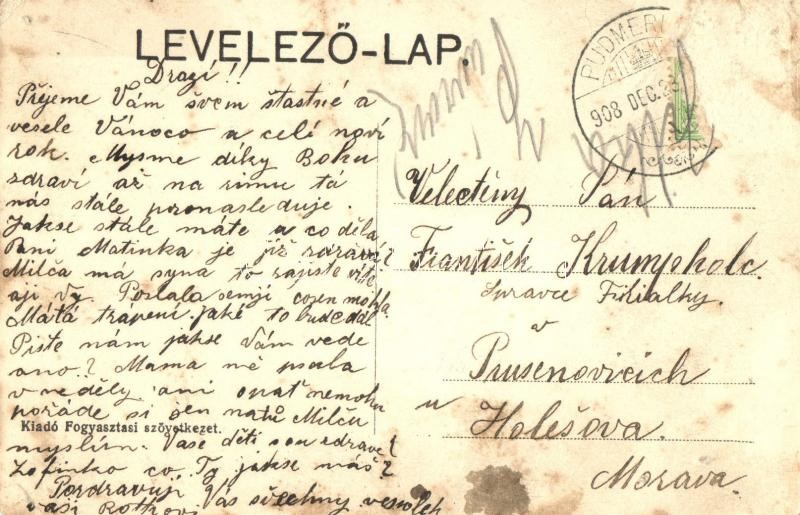 LEVELEZŐ-LAP.
PUDMERI
908 DEC. 23
Drazí!!
Přejeme Vám švem štastné a
vesele Vánoco a celí noví
rok. Mysme díky Bohu
zdraví až na rimu tá
nás stále pronasleduje.
Jakse stále máte a co děla
Pani Matinka je již zdravá?
Milča má syna to zajiste víte
aji Vy. Poslala semjí cozem mohla.
Má tá trápení jaké to bude dál
Pište nám jakse Vám vede
ano? Mama mě psala
v neděly ani opať nemohu
pořáde si jen na tú Milču
myslím. Vaše děti sou zdravé?
Žofinko co Ty jakse máš?
Pozdravují Vás všechny
vaši
Kiadó Fogyasztasi szövetkezet.
Velectěny Pán
František Krumpholc.
Spravce Filialky.
v
Prusenovicích
u Holešova.
Morava.